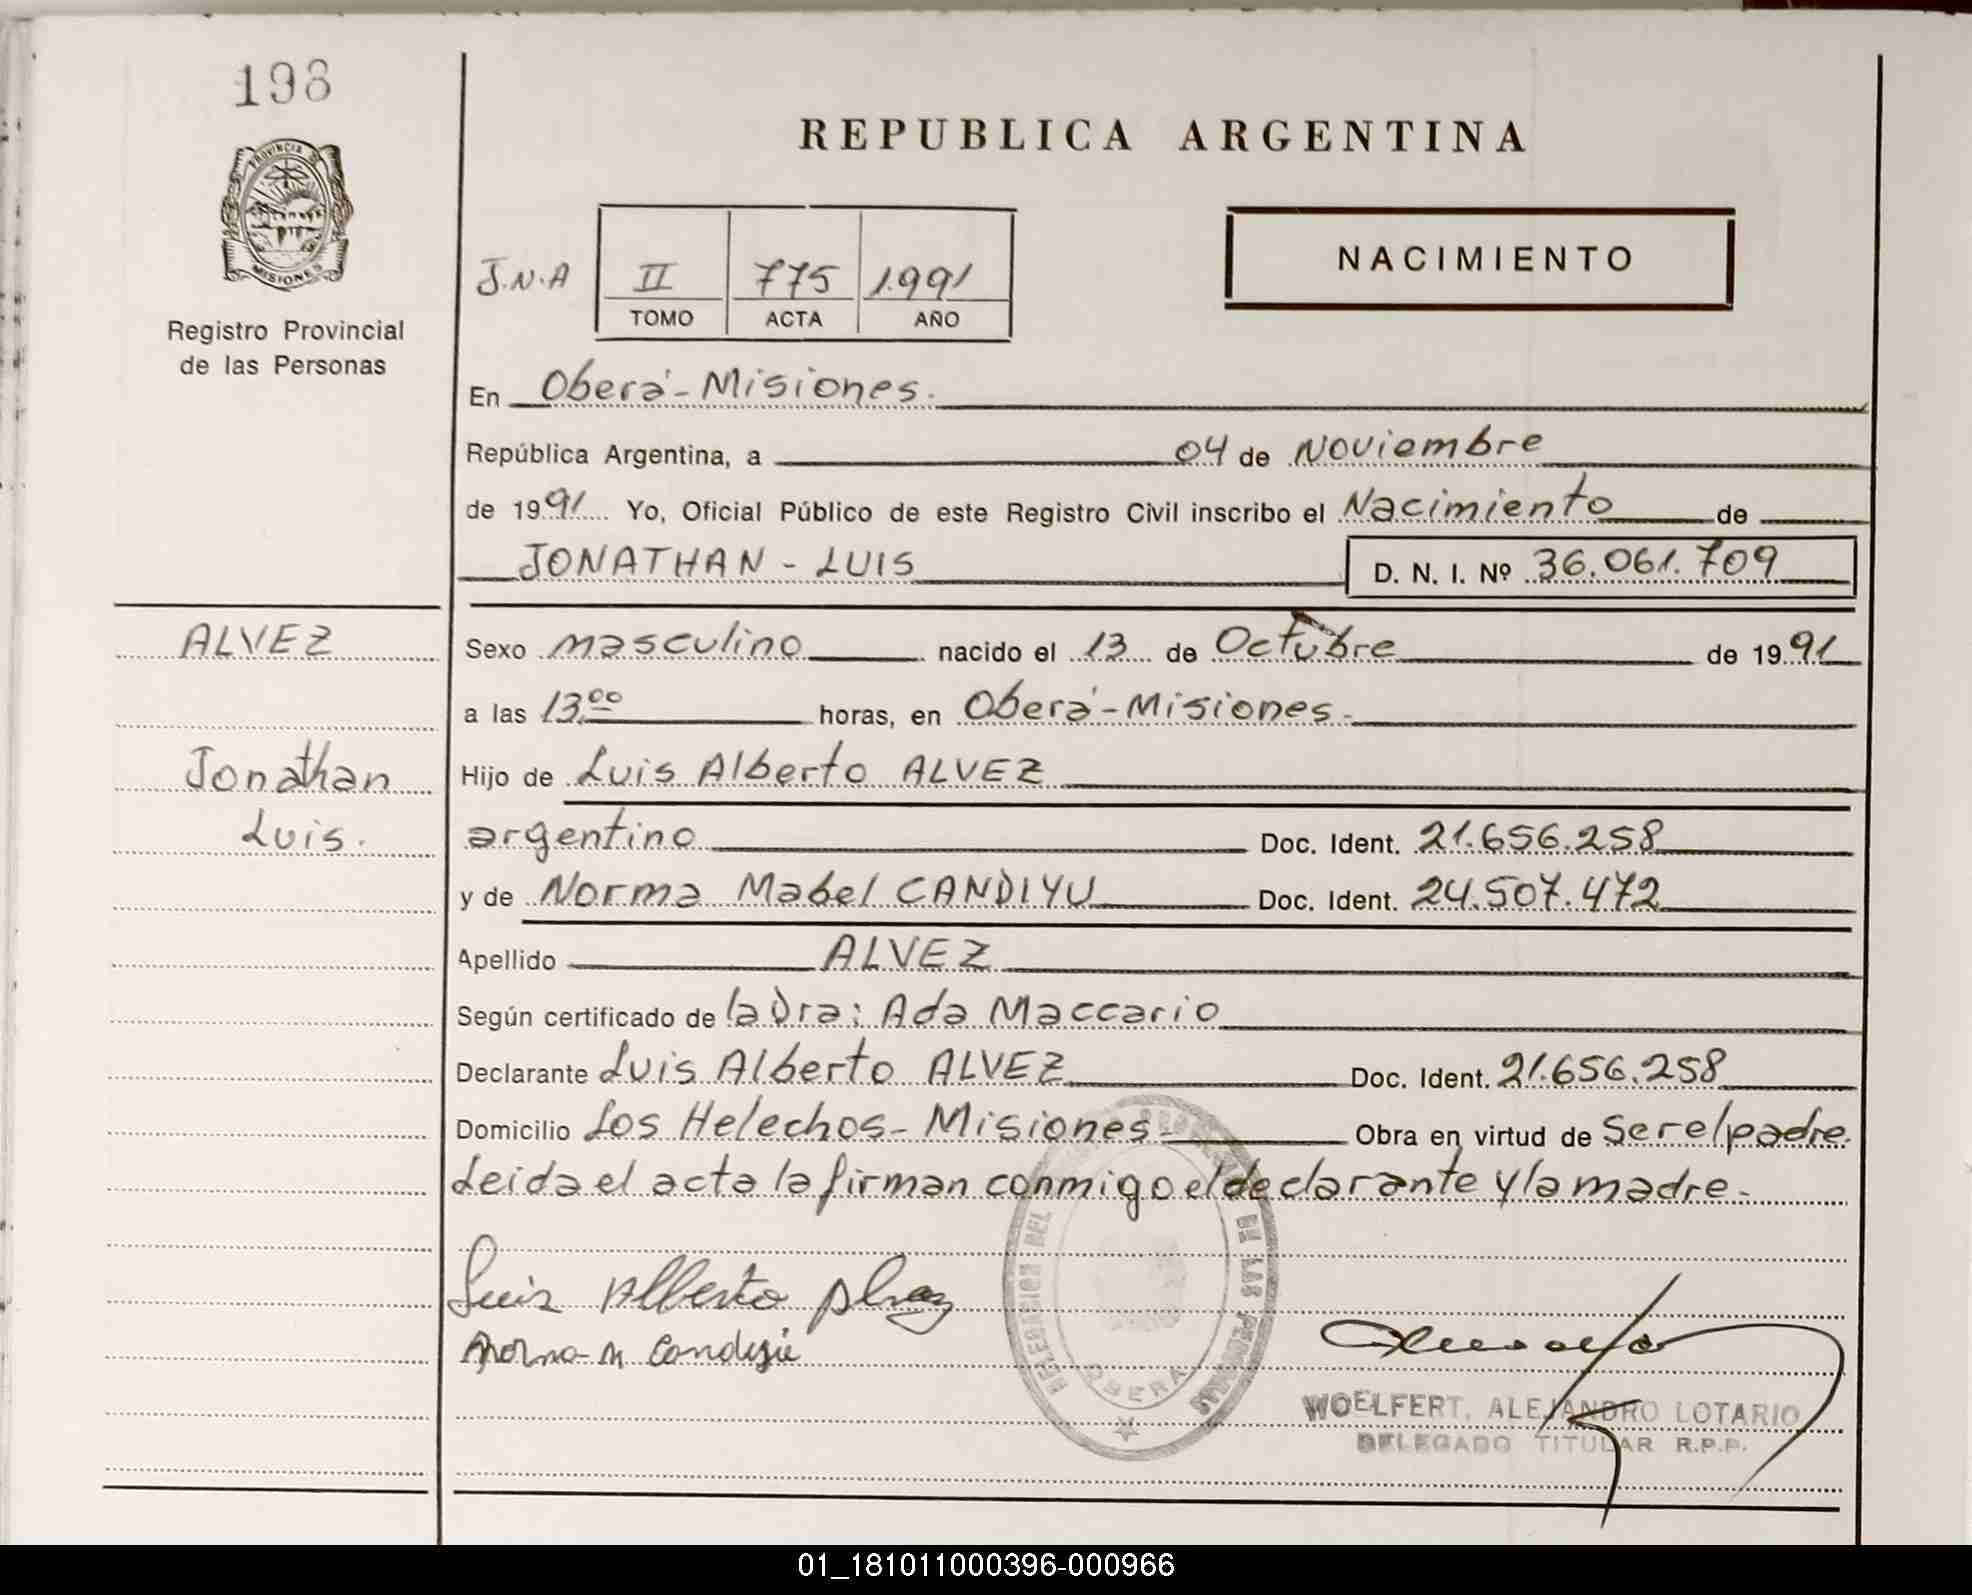 198
PROVINCIA DE
MISIONES
Registro Provincial
de las Personas
REPUBLICA ARGENTINA
NACIMIENTO
J.N.A II 775 1.991
TOMO ACTA AÑO
En Oberá - Misiones.
República Argentina, a 04 de Noviembre
de 1991 Yo, Oficial Público de este Registro Civil inscribo el Nacimiento de
JONATHAN - LUIS D. N. I. Nº 36.061.709
ALVEZ
Jonathan
Luis.
Sexo masculino nacido el 13 de Octubre de 1991
a las 13.00 horas, en Oberá - Misiones.
Hijo de Luis Alberto ALVEZ
argentino Doc. Ident. 21.656.258
y de Norma Mabel CANDIYU Doc. Ident. 24.507.472
Apellido ALVEZ
Según certificado de la Dra: Ada Maccario
Declarante Luis Alberto ALVEZ Doc. Ident. 21.656.258
Domicilio Los Helechos - Misiones - Obra en virtud de ser el padre.
Leida el acta la firman conmigo el declarante y la madre.
Luis Alberto Alvez
Norma M Candiyú
DELEGACION DEL REGISTRO DE LAS PERSONAS
OBERA
WOELFERT, ALEJANDRO LOTARIO
DELEGADO TITULAR R.P.P.
01_181011000396-000966